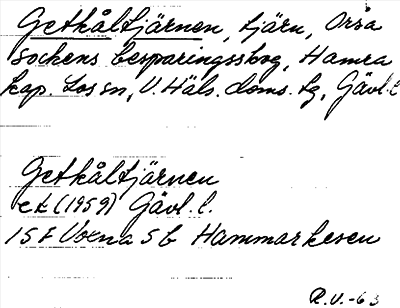 Getkåltjärnen, tjärn, Orsa
sockens besparingsskog, Hamra
kap. Los sn, V. Häls. doms. tg, Gävl. l.
Getkåltjärnen
ek (1959) Gävl. l.
15F Voxna 5b Hammarkesen
R.V.-63